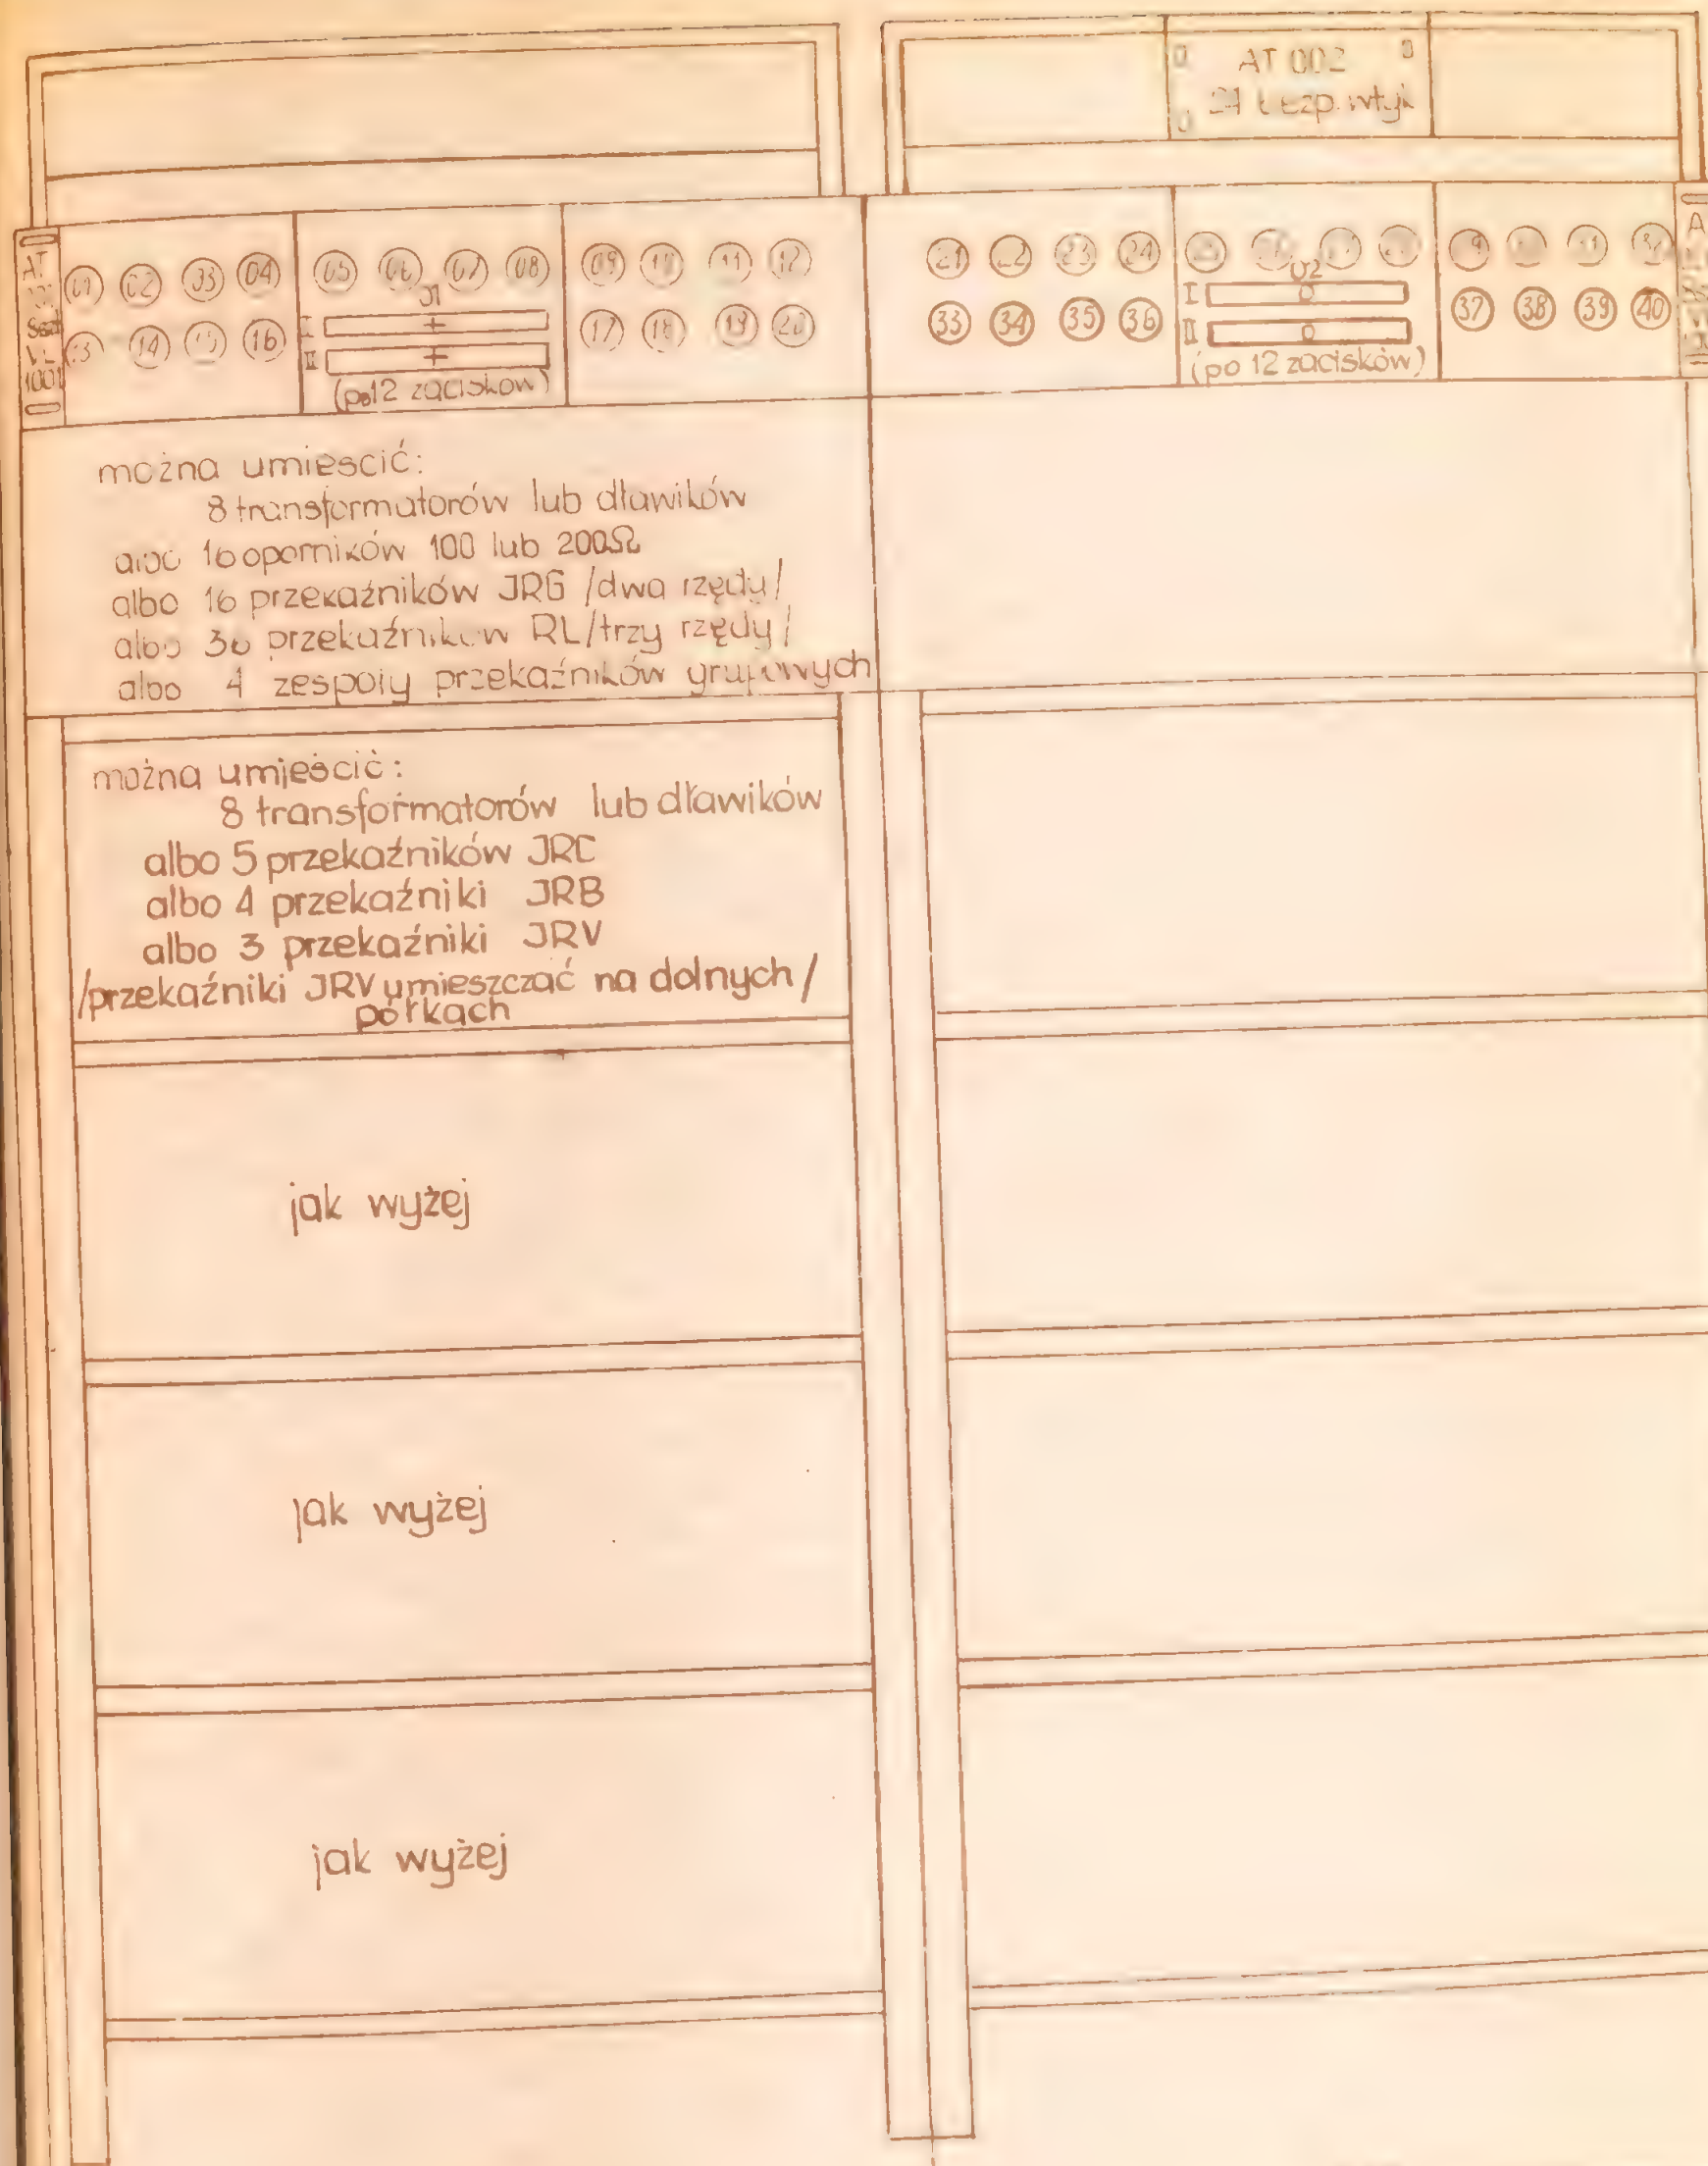 AT 002
24 bezp. wtyk
AT
Sszt
1001
01 02 03 04 05 06 07 08 09 10 11 12
14 16 17 18 19 20
01
I +
II +
(po 12 zacisków)
21 22 23 24
33 34 35 36 37 38 39 40
02
I 0
II 0
(po 12 zacisków)
można umieścić:
8 transformatorów lub dławików
albo 16 oporników 100 lub 200Ω
albo 16 przekaźników JRG /dwa rzędy/
albo 36 przekaźników RL /trzy rzędy/
albo 4 zespoły przekaźników grupowych
można umieścić:
8 transformatorów lub dławików
albo 5 przekaźników JRC
albo 4 przekaźniki JRB
albo 3 przekaźniki JRV
/przekaźniki JRV umieszczać na dolnych/
półkach
jak wyżej
jak wyżej
jak wyżej